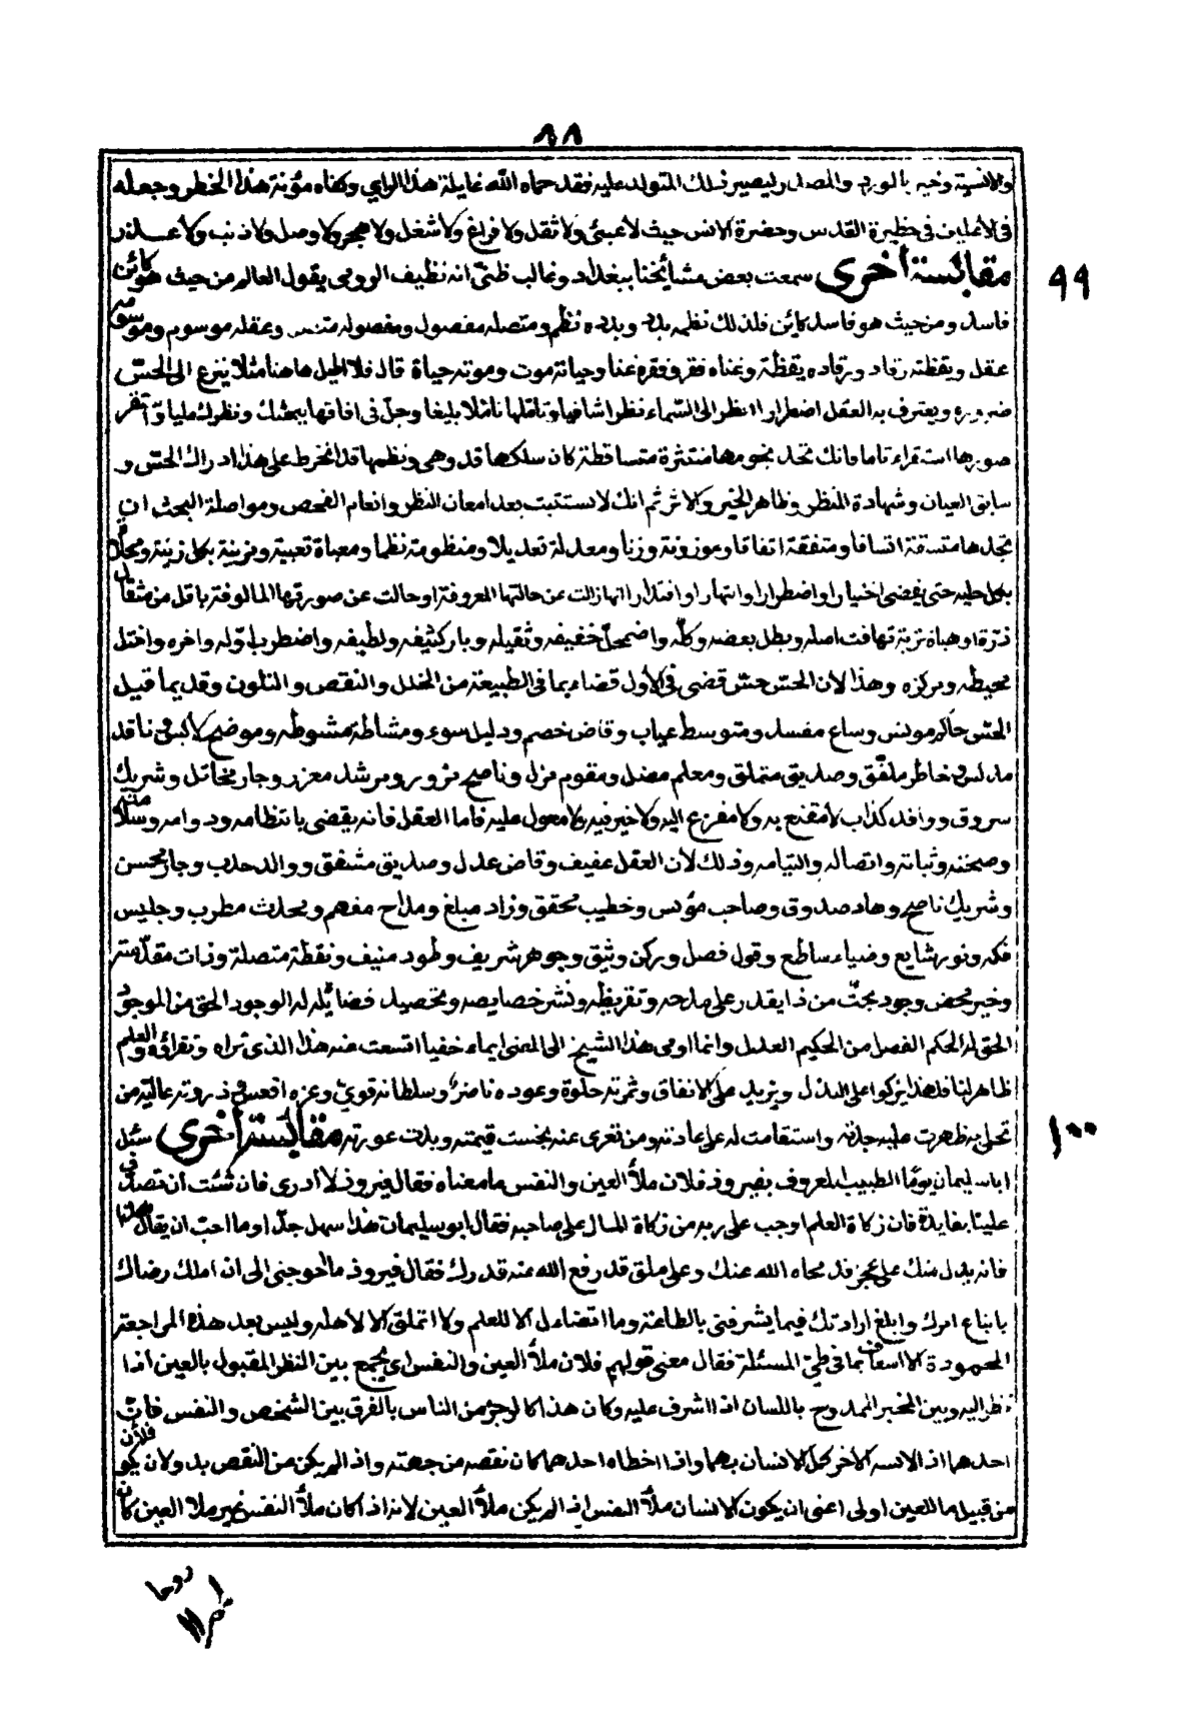 ٨٨
والانسية وخبه بالورود والمصدر ليصير ذلك المتولد عليه فقد حماه الله غايلة هذا الراي وكفاه مؤنة هذا الخطر وجعله
في الأعلين في حظيرة القدس وحضرة الانس حيث لا عبئ ولا ثقل ولا فراغ ولا شغل ولا هجر ولا وصل ولا ذنب ولا عذر
٩٩
مقابسة أخرى سمعت بعض مشائخنا ببغداد وغالب ظنّي انه نظيف الرومي يقول العالم من حيث هو كائن
فاسد ومن حيث هو فاسد كائن فلذلك نظمه بدد وبدده نظم ومتصله مفصول ومفصوله متصل وعقله موسوم وموسومه
عقل ويقظته رقاد ورقاده يقظة وغناه فقر وفقره غنا وحياته موت وموته حياة قال فلا الحيل هاهنا مثلا ينزع الى الحسّ
ضرورة ويعترف به العقل اضطرارا انظر الى السّماء نظرا شافيا وتاملها تاملا بليغا وجل في افاقها ببحثك ونظرك مليا واستقر
صورها استقراء تاما فانك تجد نجومها منتثرة متساقطة كان سلكها قد وهى ونظمها قد انخرط على هذا ادراك الحسّ و
سابق العيان وشهادة النظر وظاهر الخبر والاثر ثم انك لا تستثبت بعد امعان النظر وانعام الفحص ومواصلة البحث ان
تجدها متسقة اتساقا ومتفقة اتفاقا وموزونة وزنا ومعدلة تعديلا ومنظومة نظما ومعباة تعبية ومزينة بكل زينة ومحلاة
بكل حلية حتى يقضى اختيارا واضطرارا وانتهارا واقتدارا انها زالت عن حالتها المعروفة او حالت عن صورتها المالوفة باقل من مثقال
ذرة او هباة تربة تهافت اصله وبطل بعضه وكلّه واضمحلّ خفيفه وثقيله وبار كثيفه ولطيفه واضطرب اوّله واخره واختل
محيطه ومركزه وهذا لان الحسّ حسّ قضى في الأول قضاء بما في الطبيعة من الخلل والنقص والتلون وقديما قيل
الحسّ حاكم مونس وساع مفسد ومتوسط عياب وقاض خصم ودليل سوء ومشاطة مشوطه وموضح لا البرق ناقد
مدلس وخاطر ملفّق وصديق متملق ومعلم مضل ومقوم مزل وناصح مزور ومرشد معزر وجار مخاتل وشريك
سروق ووافد كذاب لا مقنع به ولا مفزع اليه ولا خير فيه ولا معول عليه فاما العقل فانه يقضي بانتظامه ودوامه وسلامته
وصحته وثباته واتصاله والتيامه وذلك لأن العقل عفيف وقاض عدل وصديق مشفق ووالد حدب وجار محسن
وشريك ناصح وهاد صدوق وصاحب مؤنس وخطيب محقق وزاد مبلغ وملاح مفهم ومحدث مطرب وجليس
فكه ونور شايع وضياء ساطع وقول فصل وركن وثيق وجوهر شريف وطود منيف ونقطة متصلة وذات مقدّسة
وخير محض وجود بحتّ من ذا يقدر على مدحه وتقريظه ونشر خصايصه وتحصيل فضائله له الوجود الحق من الموجود
الحق له الحكم الفصل من الحكيم العدل وانما اومى هذا الشيخ الى المعنى ايماء خفيا اتسعت منه هذا الذى تراه وتقرأه والعلم
ظاهر لنا فلهذا يزكوا على البذل ويزيد على الانفاق وثمرته حلوة وعوده ناضر وسلطانه قوي وعزه اقعس وذروته عالية من
١٠٠
تحلى به ظهرت عليه جدته واستقامت له على عادته ومن تعرى عنه بخست قيمته وبدت عورته مقابسة أخرى سئل
ابا سليمان يومًا الطبيب المعروف بفيروز فلان ملأ العين والنفس ما معناه فقال فيروز لا ادرى فان شئت ان تصدّق
علينا بفايدة فان زكاة العلم اوجب على ربه من زكاة المال على صاحبه فقال ابو سليمان هذا سهل جدّا وما احبّ ان يقال هذا
فانه يدل منك على عجز قد محاه الله عنك وعلى ملق قد رفع الله عنه قدرك فقال فيروز ما احوجني الى ان املك رضاك
باتباع امرك وابلغ ارادتك فيما يشرفني بالطاعة وما اتضاءل الا للعلم ولا اتملق الا لأهله وليس بعد هذه المراجعة
المحمودة الا اسعاف بما في طيّ المسئلة فقال معنى قولهم فلان ملأ العين والنفس اي يجمع بين النظر المقبول بالعين اذا
نظر اليه وبين المخبر الممدوح باللسان اذا اشرف عليه وكان هذا كالوجز من الناس بالفرق بين الشخص والنفس فان
احدهما اذا الانسه الاخر كمل الانسان بهما واذا اخطاه احدهما كان نقصه من جهته واذا لم يكن من النقص بد ولان يكون فلان
من قبيل ما للعين اولى اعني ان يكون الانسان ملأ النفس اذ لم يكن ملأ العين لانه اذا كان ملأ النفس غير ملا العين كان